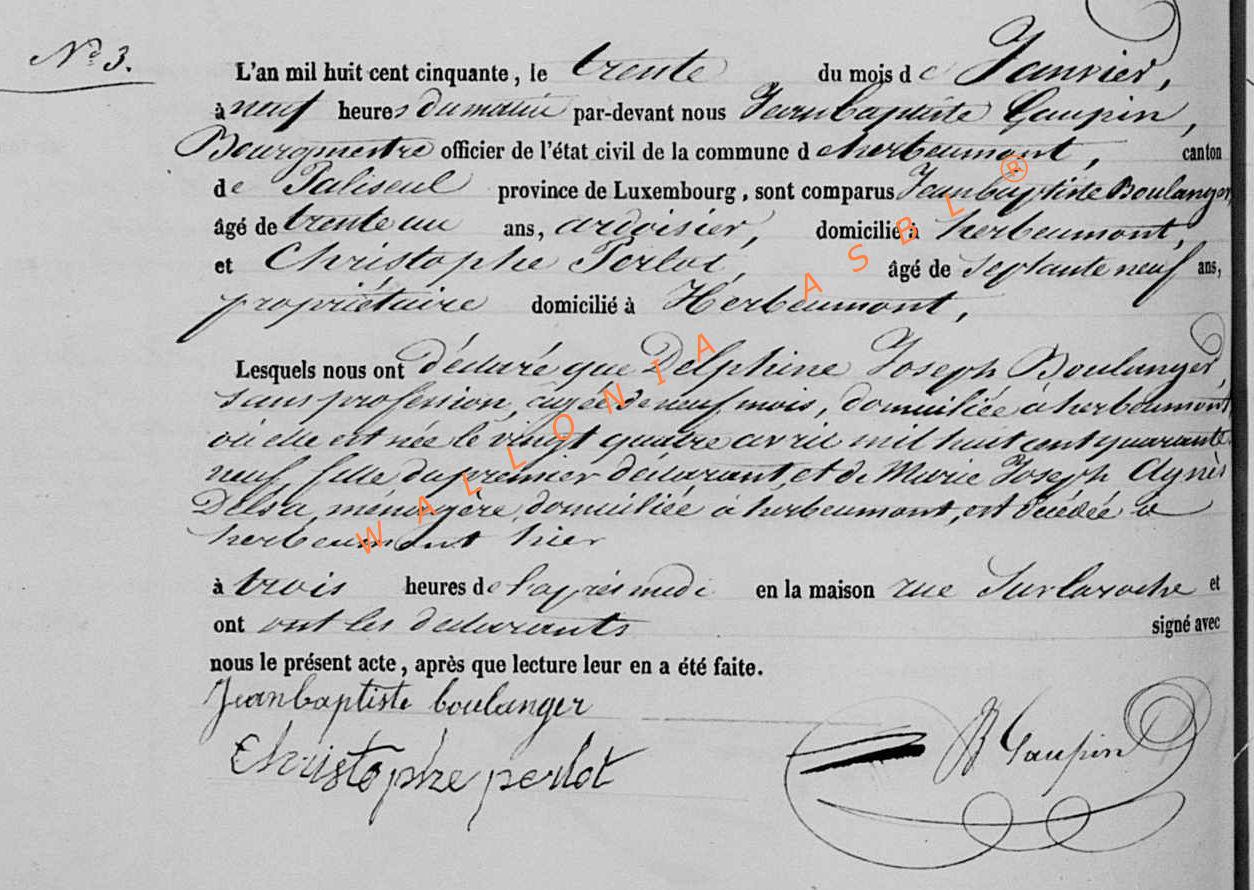 N° 3.
L'an mil huit cent cinquante, le trente du mois de Janvier,
à neuf heures du matin par-devant nous Jeanbaptiste Gaupin,
Bourgmestre officier de l'état civil de la commune d'herbeumont, canton
de Paliseul province de Luxembourg, sont comparus Jeanbaptiste Boulanger,
âgé de trente un ans, ardoisier, domicilié à herbeumont,
et Christophe Perlot, âgé de septante neuf ans,
propriétaire domicilié à Herbeumont,
Lesquels nous ont déclaré que Delphine Joseph Boulanger,
sans profession, âgée de neuf mois, domiciliée à herbeumont
où elle est née le vingt quatre avril mil huit cent quarante
neuf, fille du premier déclarant, et de Marie Joseph Agnès
Delsa, ménagère, domiciliée à herbeumont, est décédée à
herbeumont hier
à trois heures de l'après midi en la maison rue Surlaroche et
ont ont les déclarants signé avec
nous le présent acte, après que lecture leur en a été faite.
Jeanbaptiste boulanger
Christophe perlot
JB Gaupin
WALLONIA ASBL ®